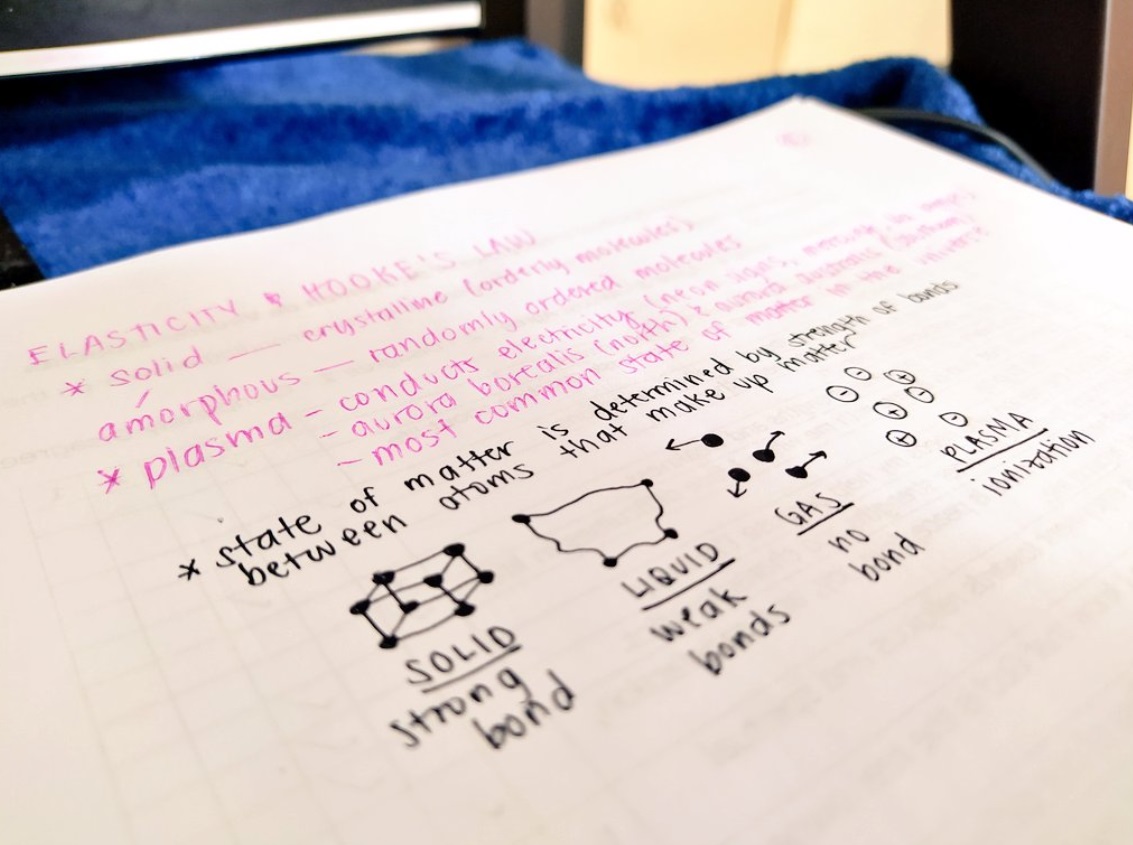 ELASTICITY & HOOKE'S LAW
* solid — crystalline (orderly molecules)
amorphous — randomly ordered molecules
* plasma - conducts electricity (neon signs,
- aurora borealis (north) & aurora australis (southern)
- most common state of matter in the universe
* state of matter is determined by strength of bonds
between atoms that make up matter
SOLID
strong
bond
LIQUID
weak
bonds
GAS
no
bond
PLASMA
ionization